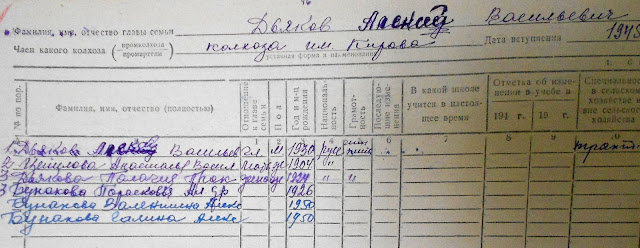 Фамилия, имя, отчество главы семьи Дьяков Васильевич
Член какого колхоза (промколхоза промартели) колхоза им. Кирова Дата вступления 1945
уставная форма и наименование
№ по пор. Фамилия, имя, отчество (полностью) Отношение к главе семьи Пол Год и м-ц рождения Националь-ность Грамот-ность Последую-щие изме-нения В какой школе учится в настоя-щее время Отметка об изме-нении в учебе в 194 г. 19 г. Специально в сельском хозяйстве и вне сельского хозяйства
1 2 3 4 5 6 7 8 9
1 Дьяков Васильев гл. м 1930 русс
2 Анастасия Васил 1904 "
3 Дьякова Пелагея Прок 1929 " "
3 Бунакова Парасковья Ал др 1926
Бунакова Валентина Алекс 1950
Бунакова Галина Алекс 1950